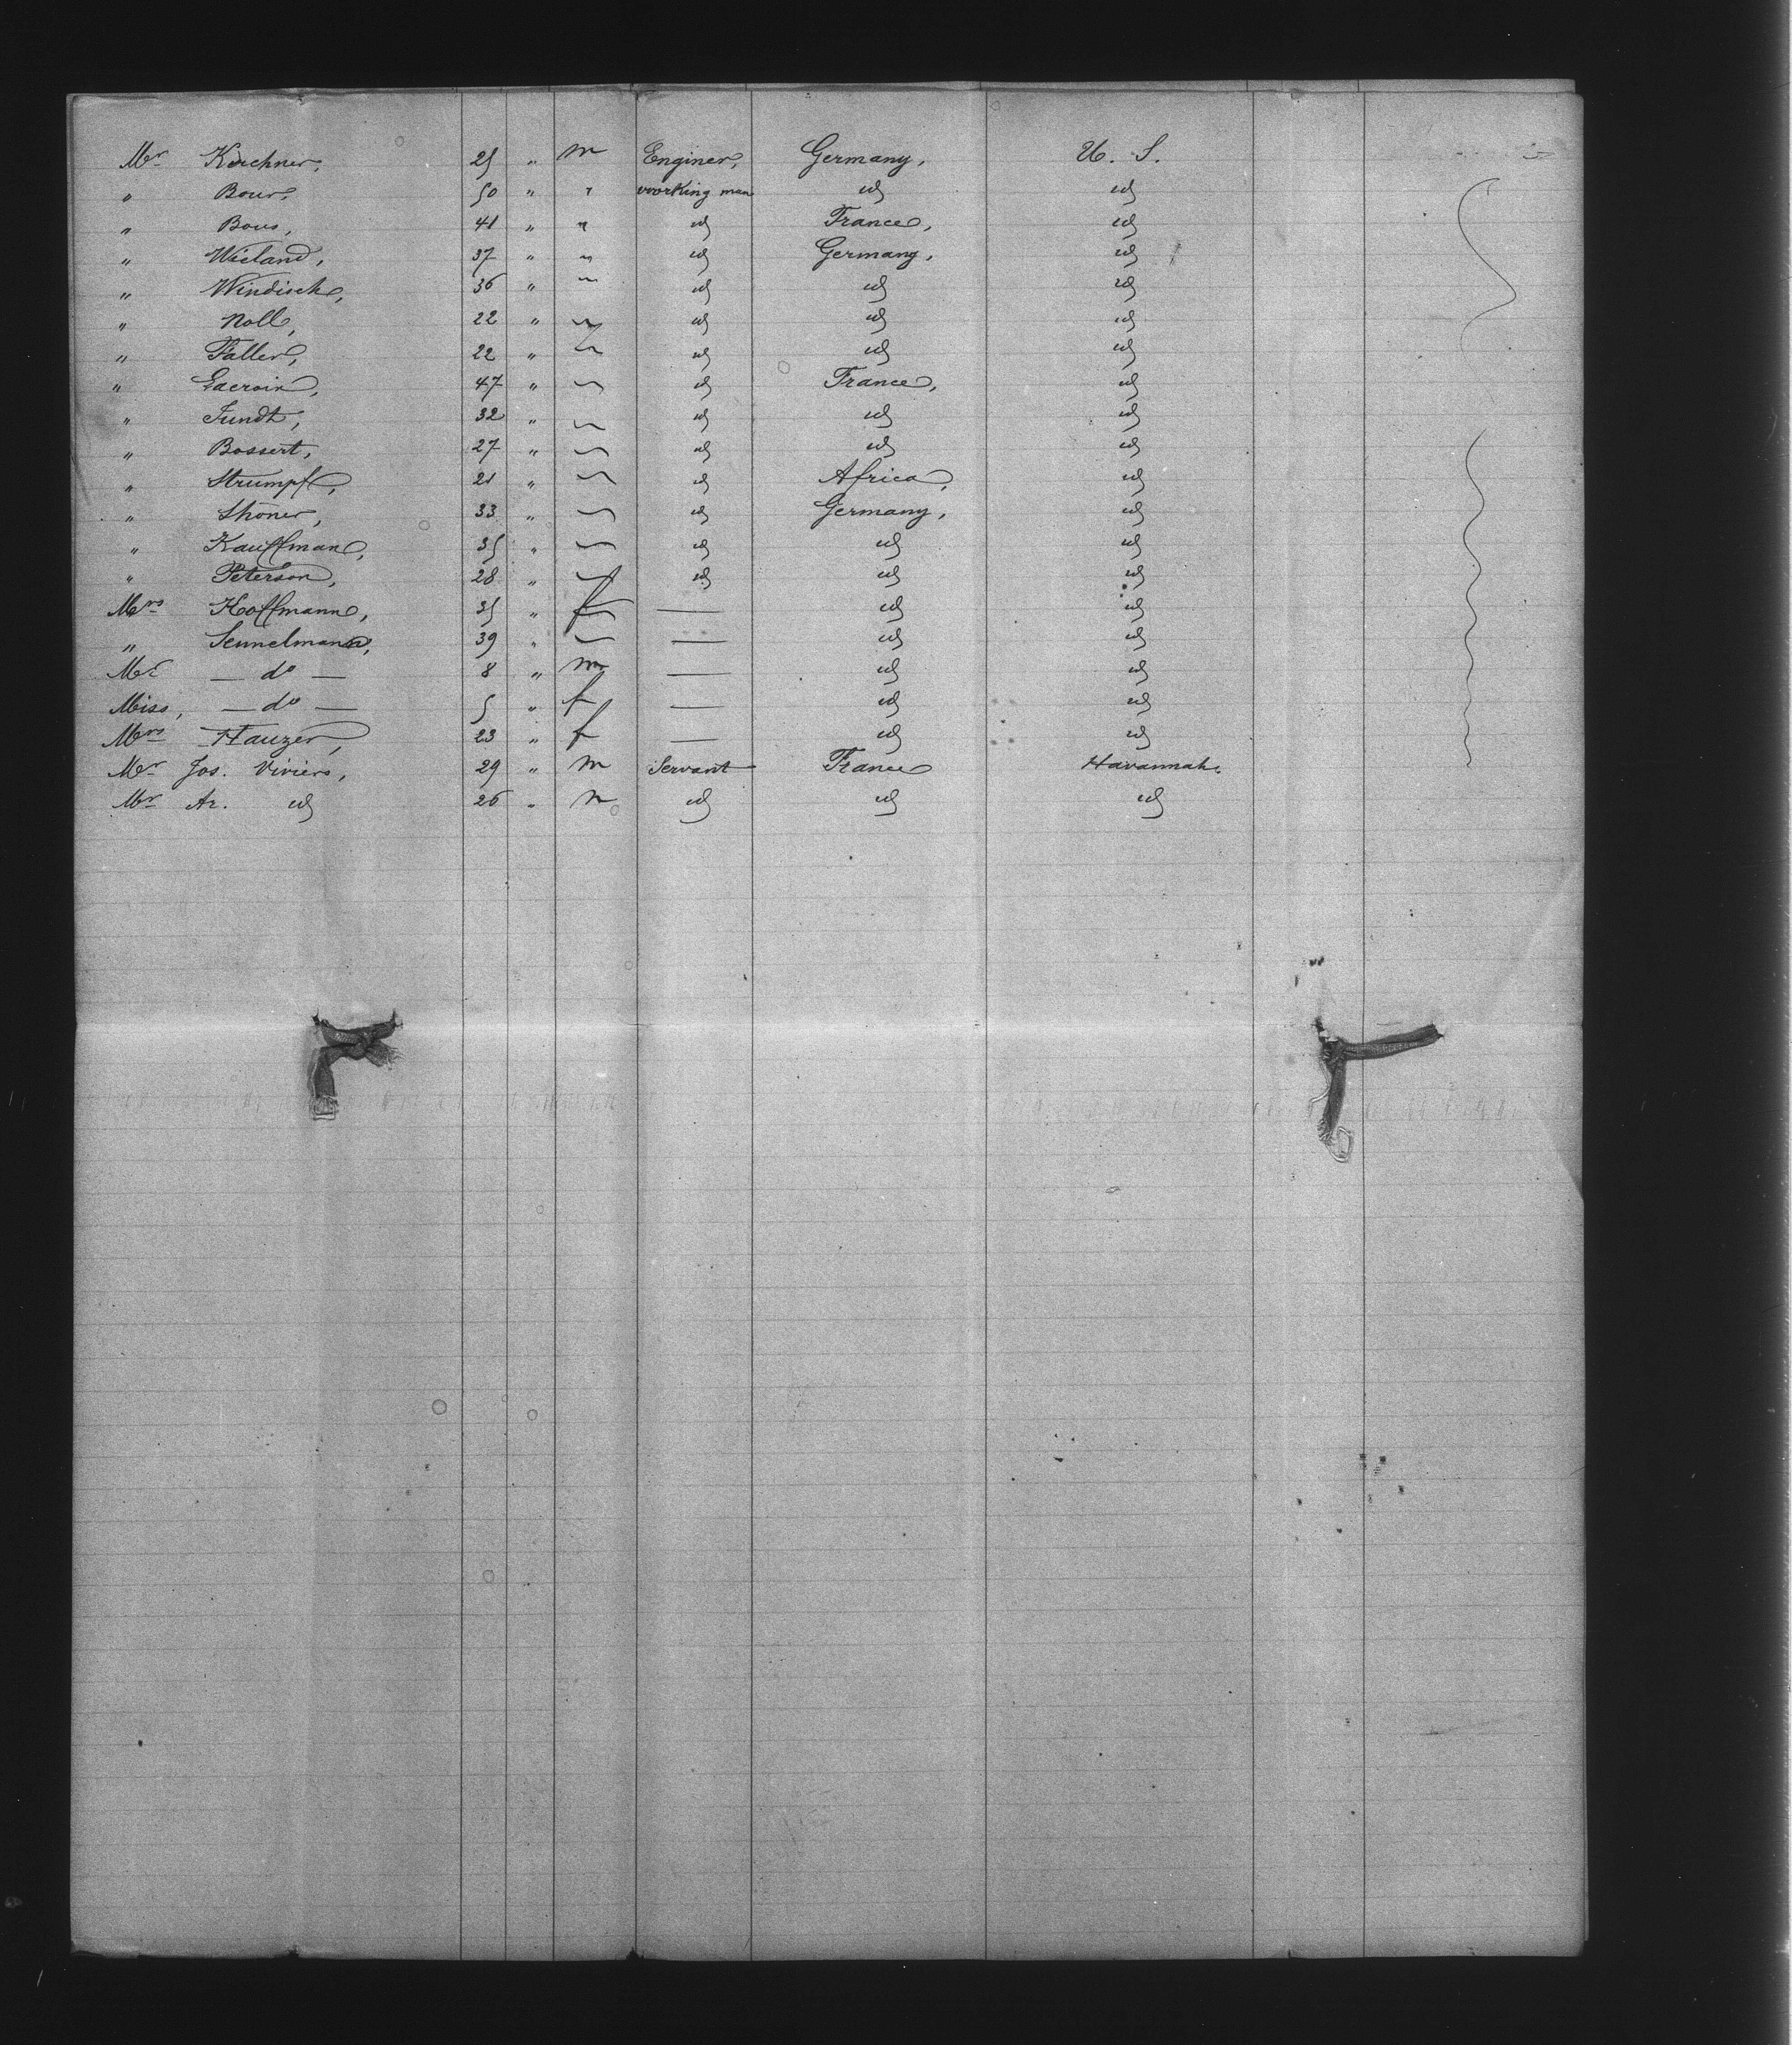 Mr Kirchner, 25 " m Enginer, Germany, U. S.
" Bour, 50 " " woorking man id id
" Bous, 41 " " id France, id
" Wieland, 37 " " id Germany, id
" Windisch, 36 " " id id id
" Noll, 22 " " id id id
" Faller, 22 " " id id id
" Lacroix, 47 " " id France, id
" Jundt, 32 " " id id id
" Bossert, 27 " " id id id
" Strumpf, 21 " " id Africa, id
" Shoner, 33 " " id Germany, id
" Kauffman, 35 " " id id id
" Peterson, 28 " " id id id
Mrs Hoffmann, 35 " f — id id
" Sennelmann, 39 " " — id id
Mr — do — 8 " m — id id
Miss, — do — 5 " f — id id
Mrs Hauzer, 23 " f — id id
Mr Jos. Viviers, 29 " m Servant France Havannah.
Mr Ar. id 26 " m id id id